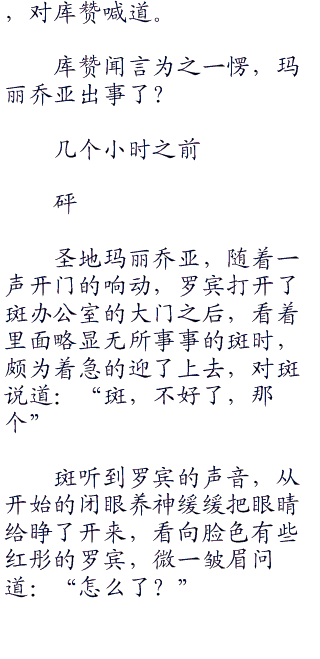 ，对库赞喊道。
库赞闻言为之一愣，玛
丽乔亚出事了？
几个小时之前
砰
圣地玛丽乔亚，随着一
声开门的响动，罗宾打开了
斑办公室的大门之后，看着
里面略显无所事事的斑时，
颇为着急的迎了上去，对斑
说道：“斑，不好了，那
个”
斑听到罗宾的声音，从
开始的闭眼养神缓缓把眼睛
给睁了开来，看向脸色有些
红彤的罗宾，微一皱眉问
道：“怎么了？”